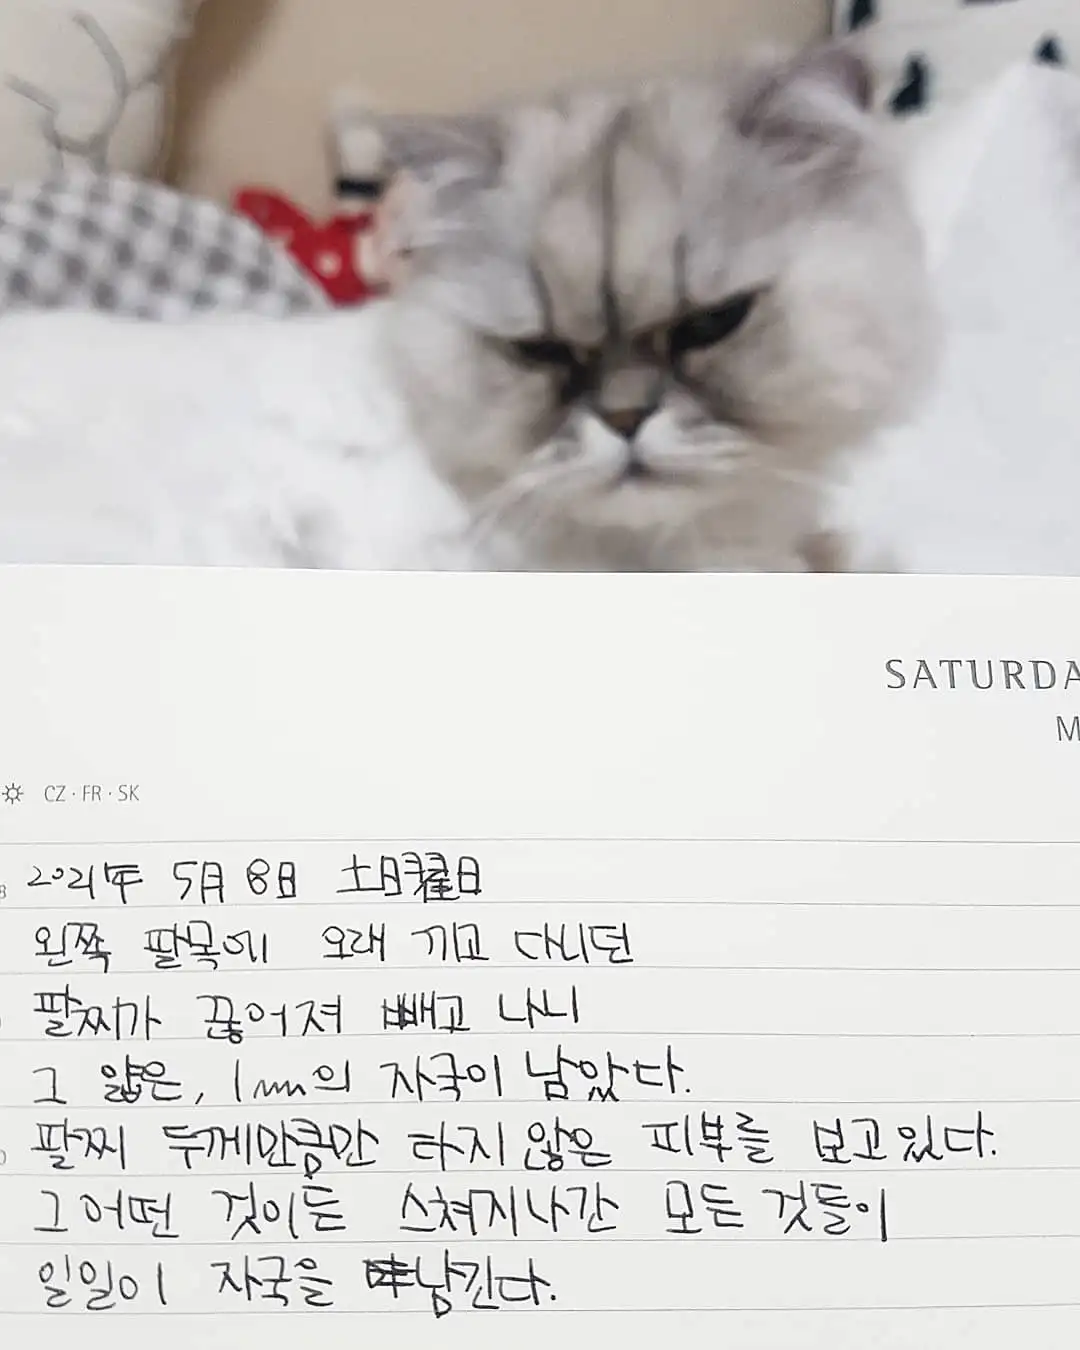 SATURDA
M
CZ · FR · SK
8
2021年 5月 8日 土日曜日
왼쪽 팔목에 오래 끼고 다니던
팔찌가 끊어져 빼고 나니
그 얇은, 1mm의 자국이 남았다.
팔찌 두께만큼만 타지 않은 피부를 보고있다.
그 어떤 것이든 스쳐지나간 모든 것들이
일일이 자국을 남긴다.